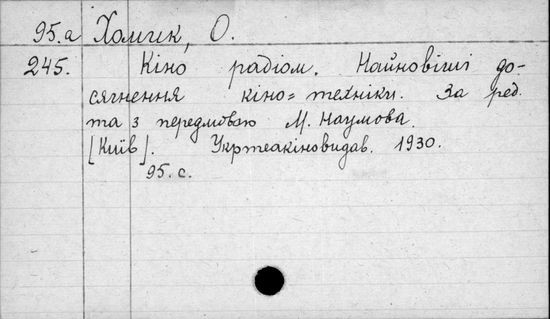 95.а Хомик, О.
245. Кіно радіом. Найновіші до-
сягнення кіно=техніки. За ред.
та з передмовою М. Наумова.
[Київ]. Укртеакіновидав. 1930.
95. с.